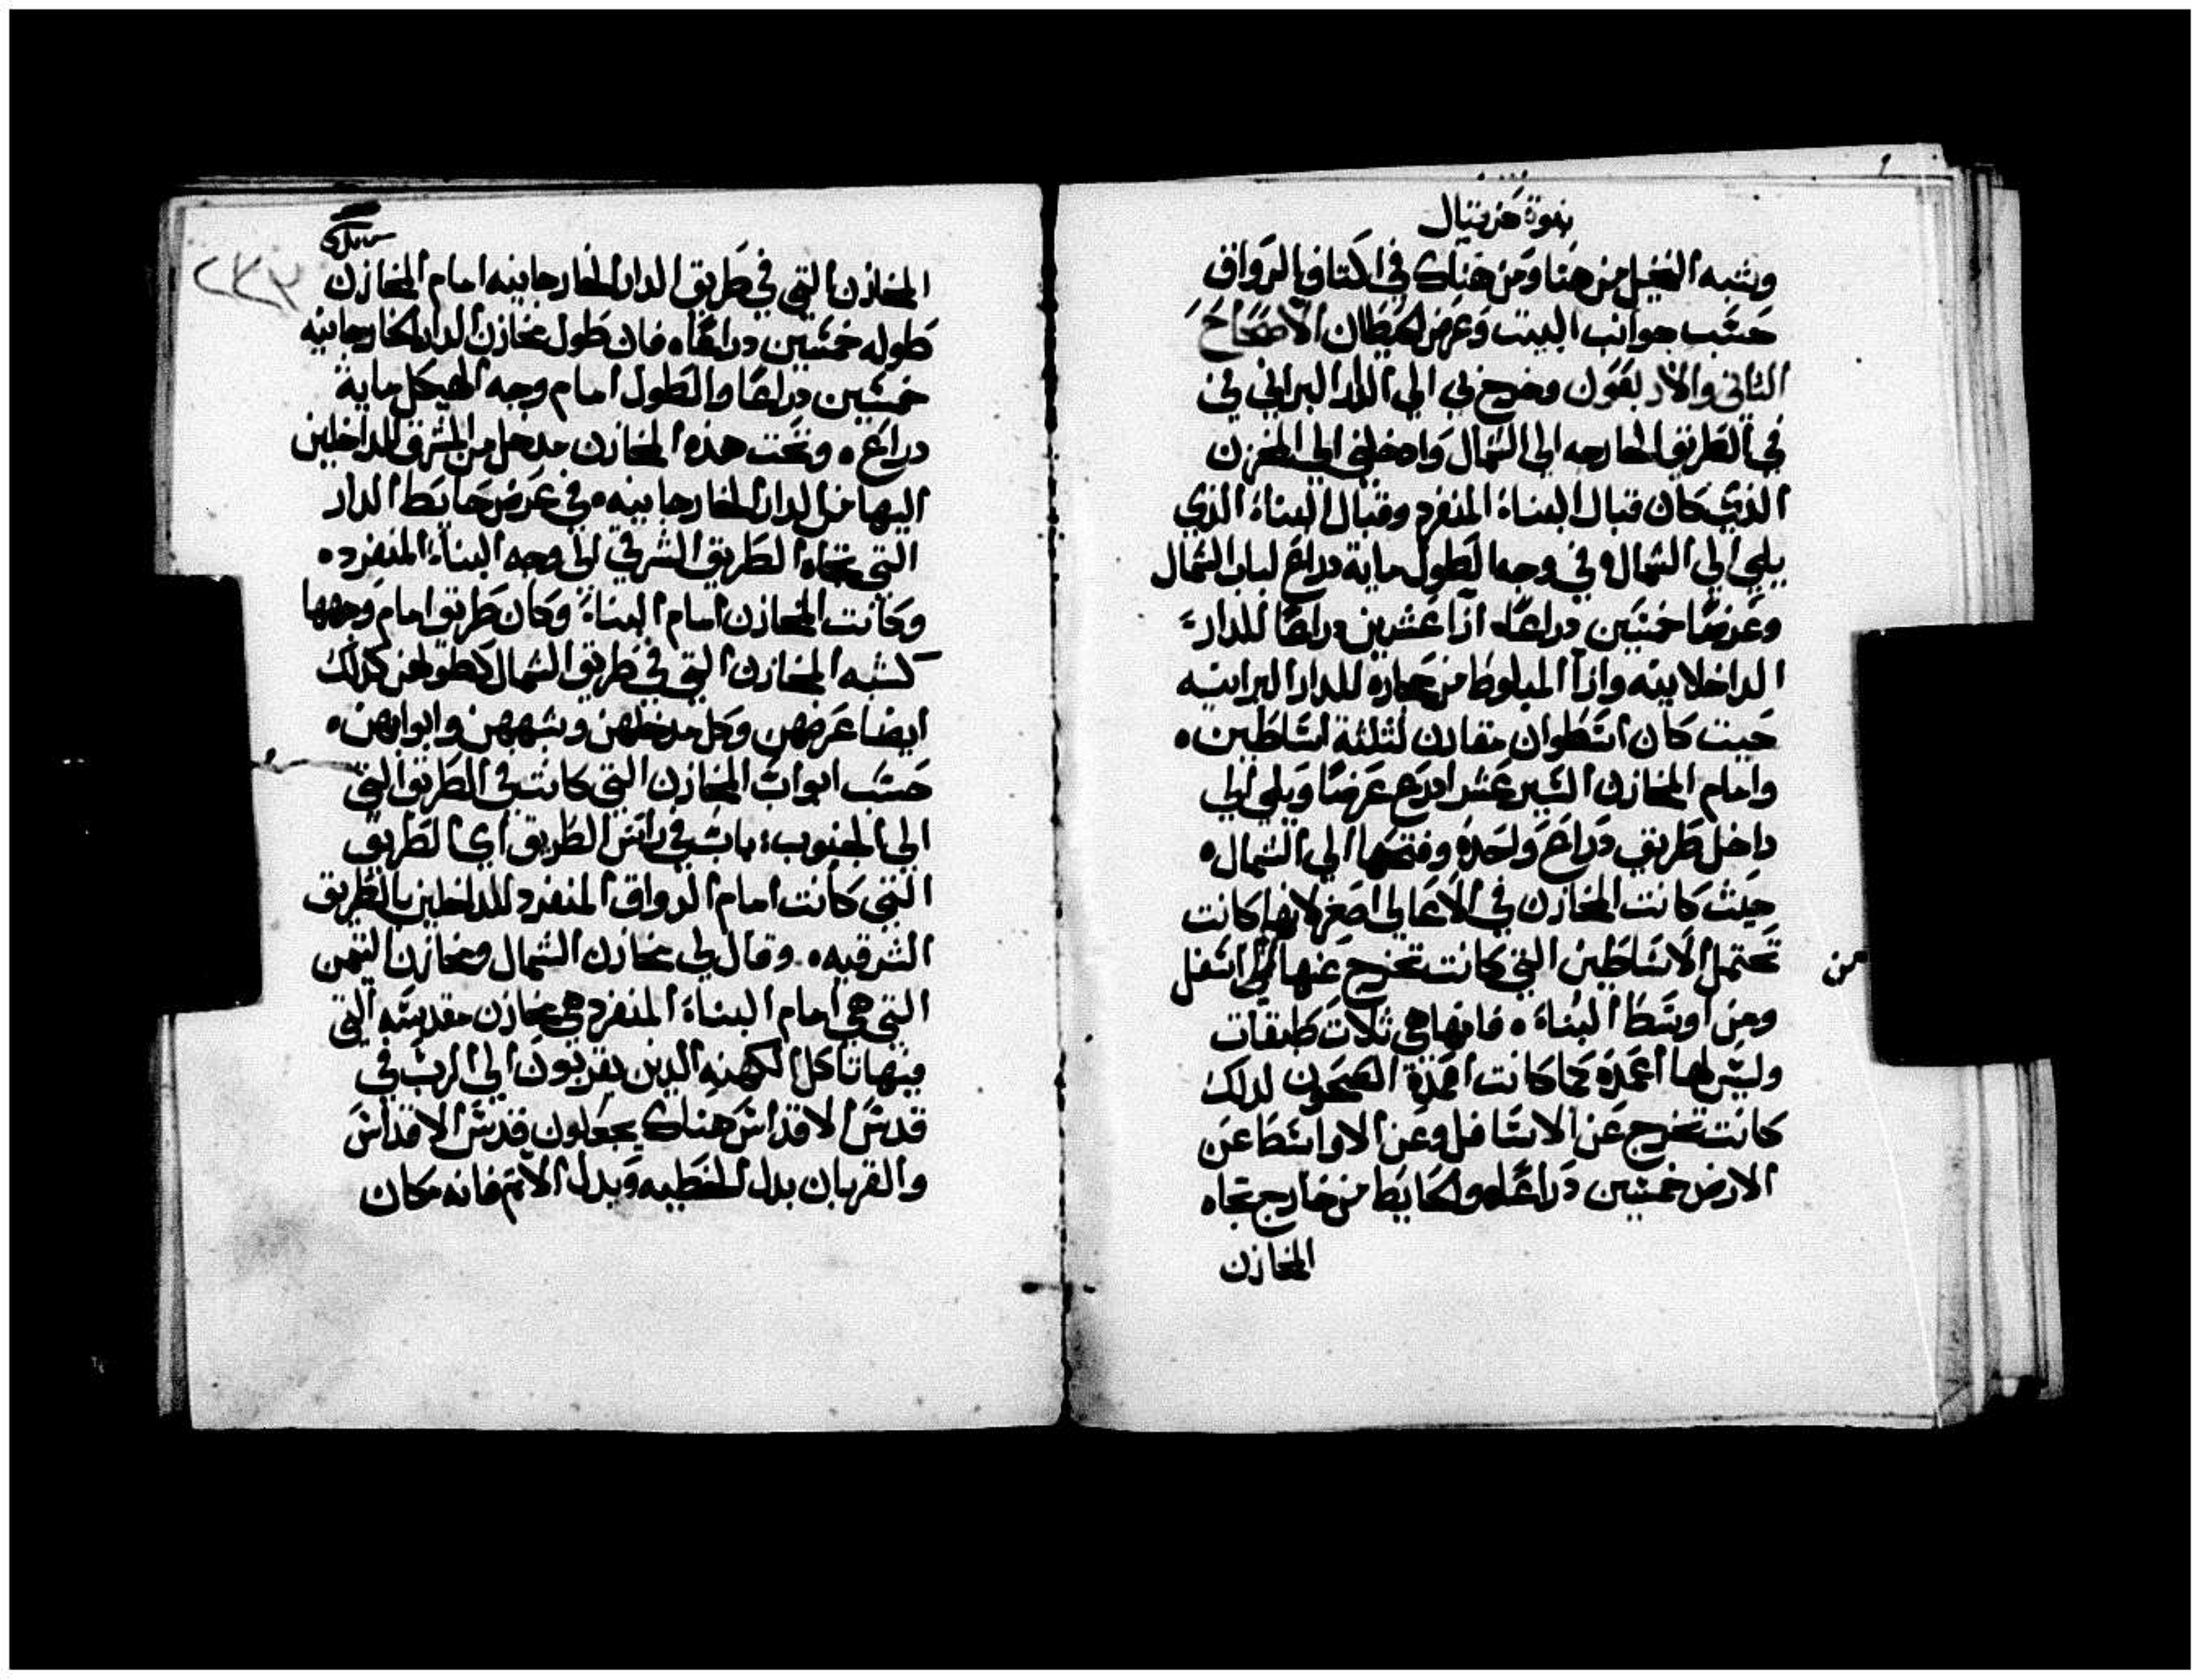 نبوة حزقيال
وشبه النخيل من هنا ومن هناك في اكتاف الرواق
حسب جوانب البيت وعرض الحيطان الاصحاح
الثاني والاربعون وخرج بي الي الدار البراني في
في الطريق الخارجه الي الشمال وادخلني الي المخزن
الذي كان قبال البناة المنفرد وقبال البناة الذي
يلي الي الشمال وفي وجه الطول ماية دراع لباب الشمال
وعرضا خمسين دراعا ازا عشرين دراعا للدار
الداخلانيه وازا المبلوط من حجارة للدار البرانيه
حيت كان اسطوان مقارن لثلثة اساطين
وامام المخازن السير عشر ادرع عرضا ويلي الي
داخل طريق دراع واحده وفتحها الي الشمال
حيث كانت المخازن في الاعالي اصغر لانها كانت
تحتمل الاساطين التي كانت تخرج عنها من اسفل
من
ومن اوسط البناة فانها هي ثلات طبقات
وليس لها اعمدة كما كانت اعمدة الصحون لدلك
كانت تخرج عن الاسافل وعن الاواسط عن
الارض خمسين دراعا والحايط من خارج تجاه
المخازن
المخازن التي في طريق الدار الخارجانيه امام المخازن
طوله خمسين دراعا فان طول مخازن الدار الخارجانيه
خمسين دراعا والطول امام وجه الهيكل ماية
دراع وتحت هذه المخازن مدخل من المشرق للداخلين
اليها من الدار الخارجانيه في عرض حايط الدار
التي تجاه الطريق الشرقي الي وجه البناة المنفرد
وكانت المخازن امام البناة وكان طريق امام وجهها
كشبه المخازن التي في طريق الشمال كطولهن كدلك
ايضا عرضهن وكل مدخلهن وشبههن وابوابهن
حسب ابواب المخازن التي كانت في الطريق التي
الي الجنوب باب في راس الطريق اي الطريق
التي كانت امام الرواق المنفرد للداخلين بالطريق
الشرقيه وقال لي مخازن الشمال ومخازن التيمن
التي هي امام البناة المنفرد هي مخازن مقدسه التي
فيها تاكل الكهنه الدين يقربون الي الرب في
قدس الاقداس هناك يجعلون قدس الاقداس
والقربان بدل الخطيه وبدل الاتم فانه مكان